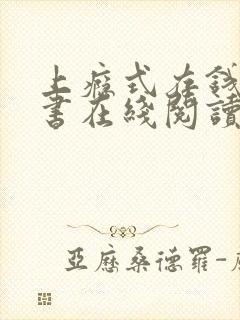 上癮式存錢
書在綫閱讀
亞歷桑德羅-